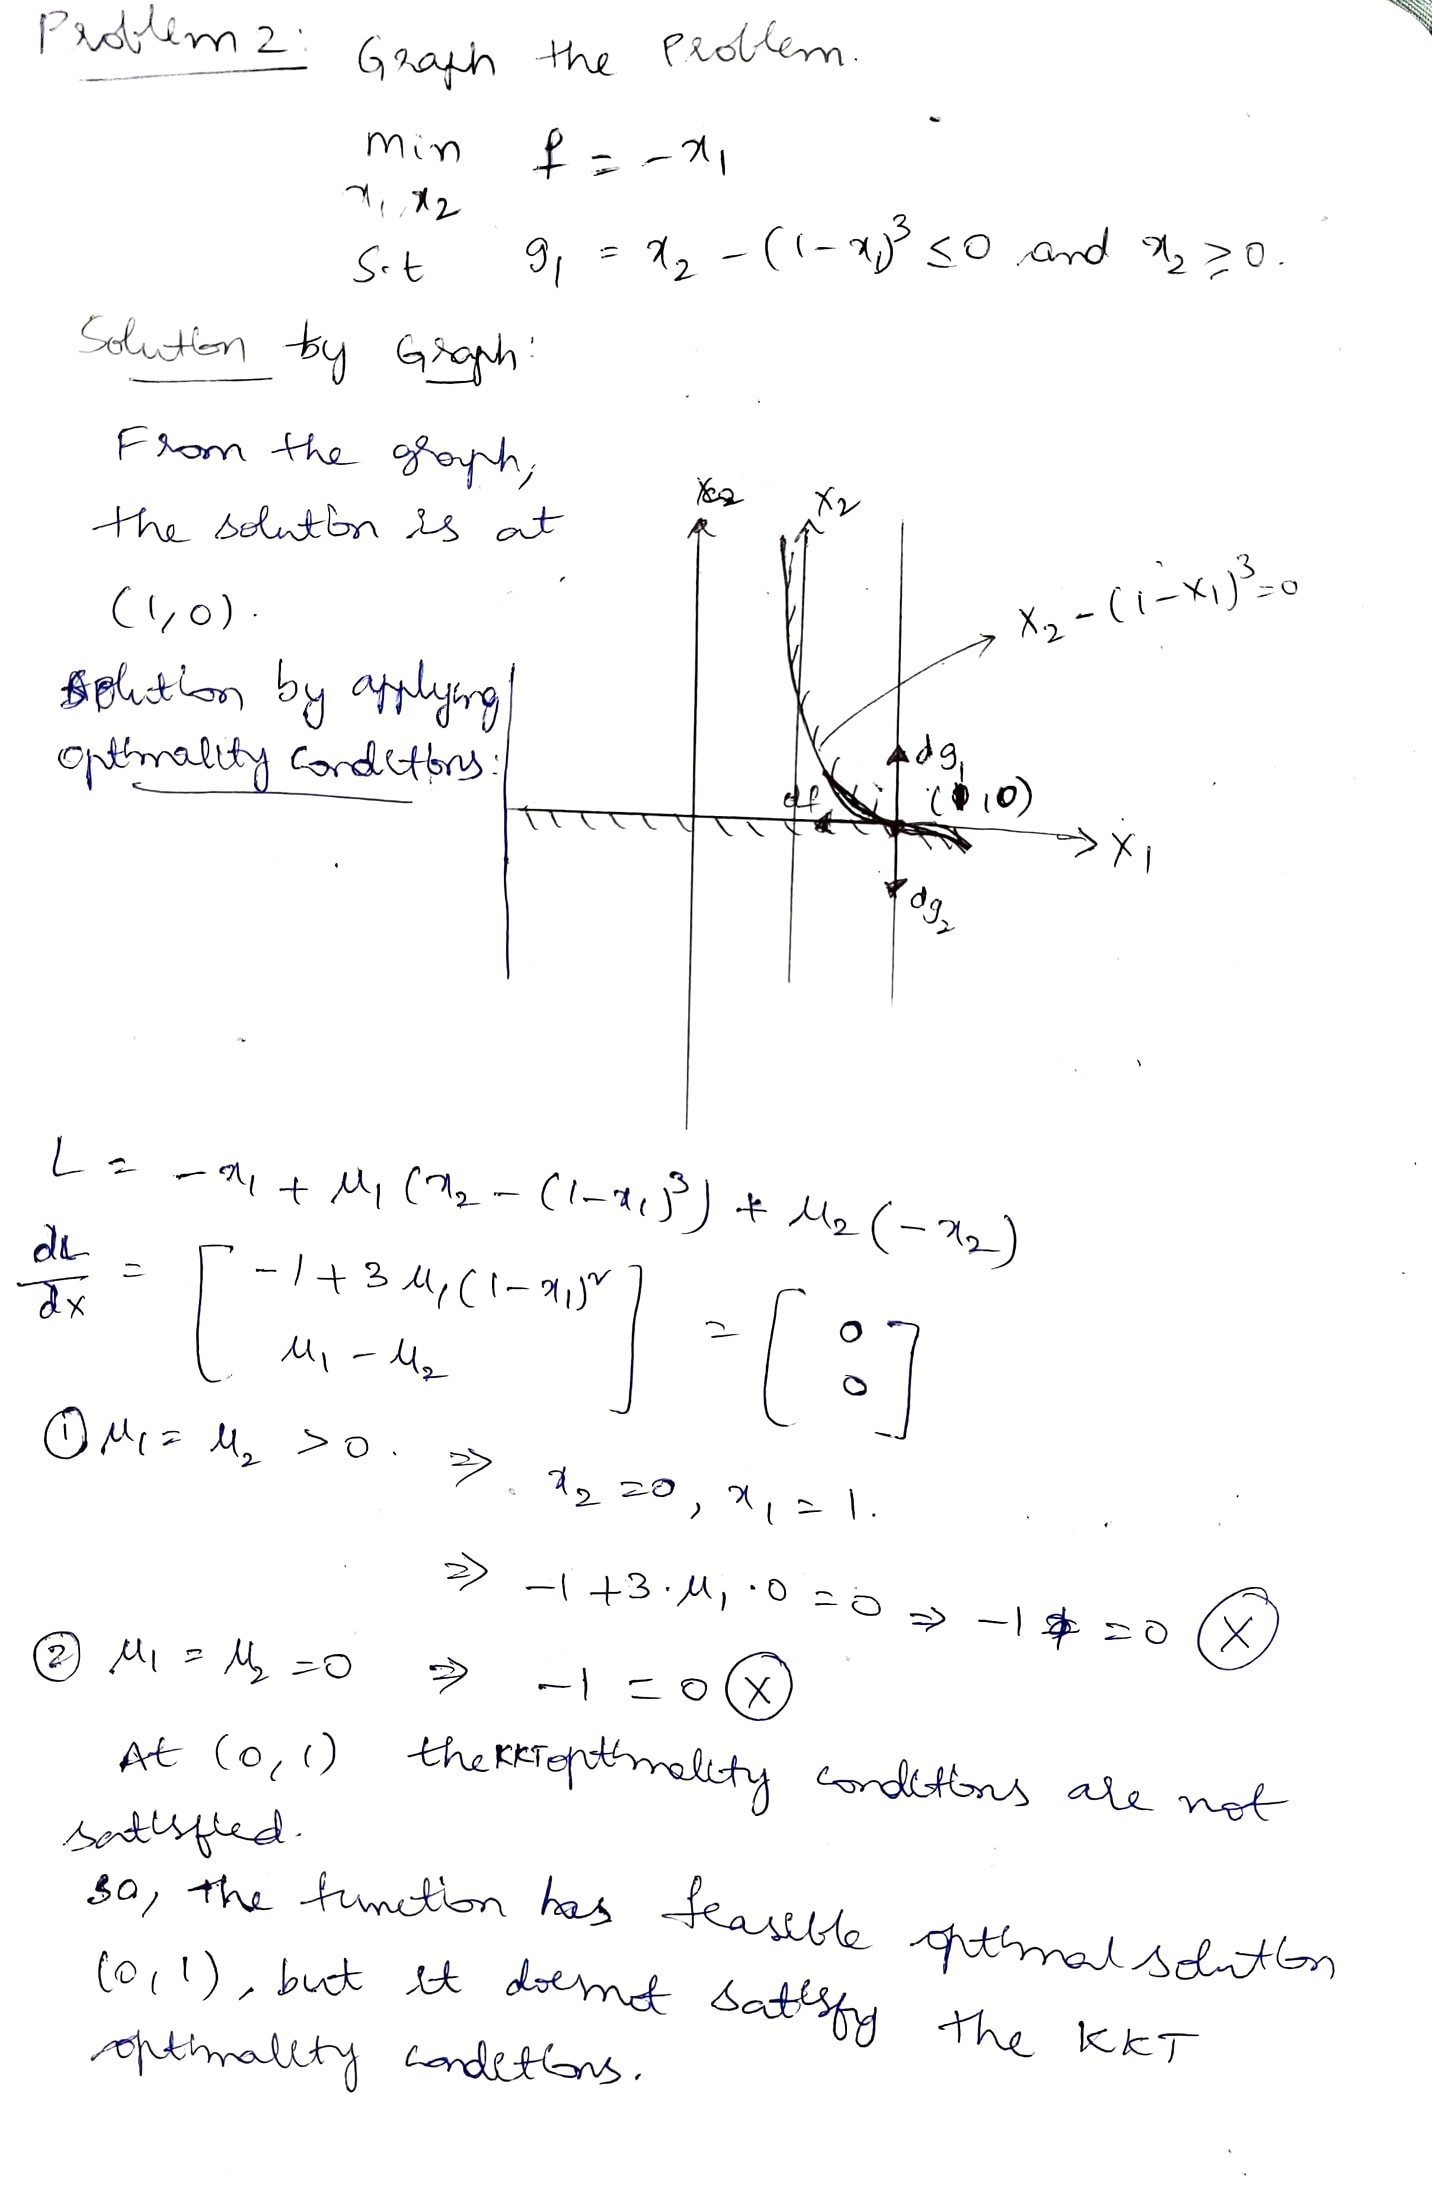 Problem 2: Graph the Problem.
min f = -x₁
x₁, x₂
S.t g₁ = x₂ - (1-x₁)³ ≤ 0 and x₂ ≥ 0.
Solution by Graph:
From the graph,
the solution is at
(1,0).
Solution by applying
optimality conditions:
X₂
X₂
X₂ - (1-X₁)³ = 0
dg₁
df
(1,0)
X₁
dg₂
L = -x₁ + μ₁ (x₂ - (1-x₁)³) + μ₂ (-x₂)
dL/dx = [ -1 + 3 μ₁ (1-x₁)² ; μ₁ - μ₂ ] = [ 0 ; 0 ]
① μ₁ = μ₂ > 0. ⇒ x₂ = 0, x₁ = 1.
⇒ -1 + 3·μ₁·0 = 0 ⇒ -1 = 0 Ⓧ
② μ₁ = μ₂ = 0 ⇒ -1 = 0 Ⓧ
At (0,1) the KKT optimality conditions are not
satisfied.
So, the function has feasible optimal solution
(0,1), but it doesnot satisfy the KKT
optimality conditions.